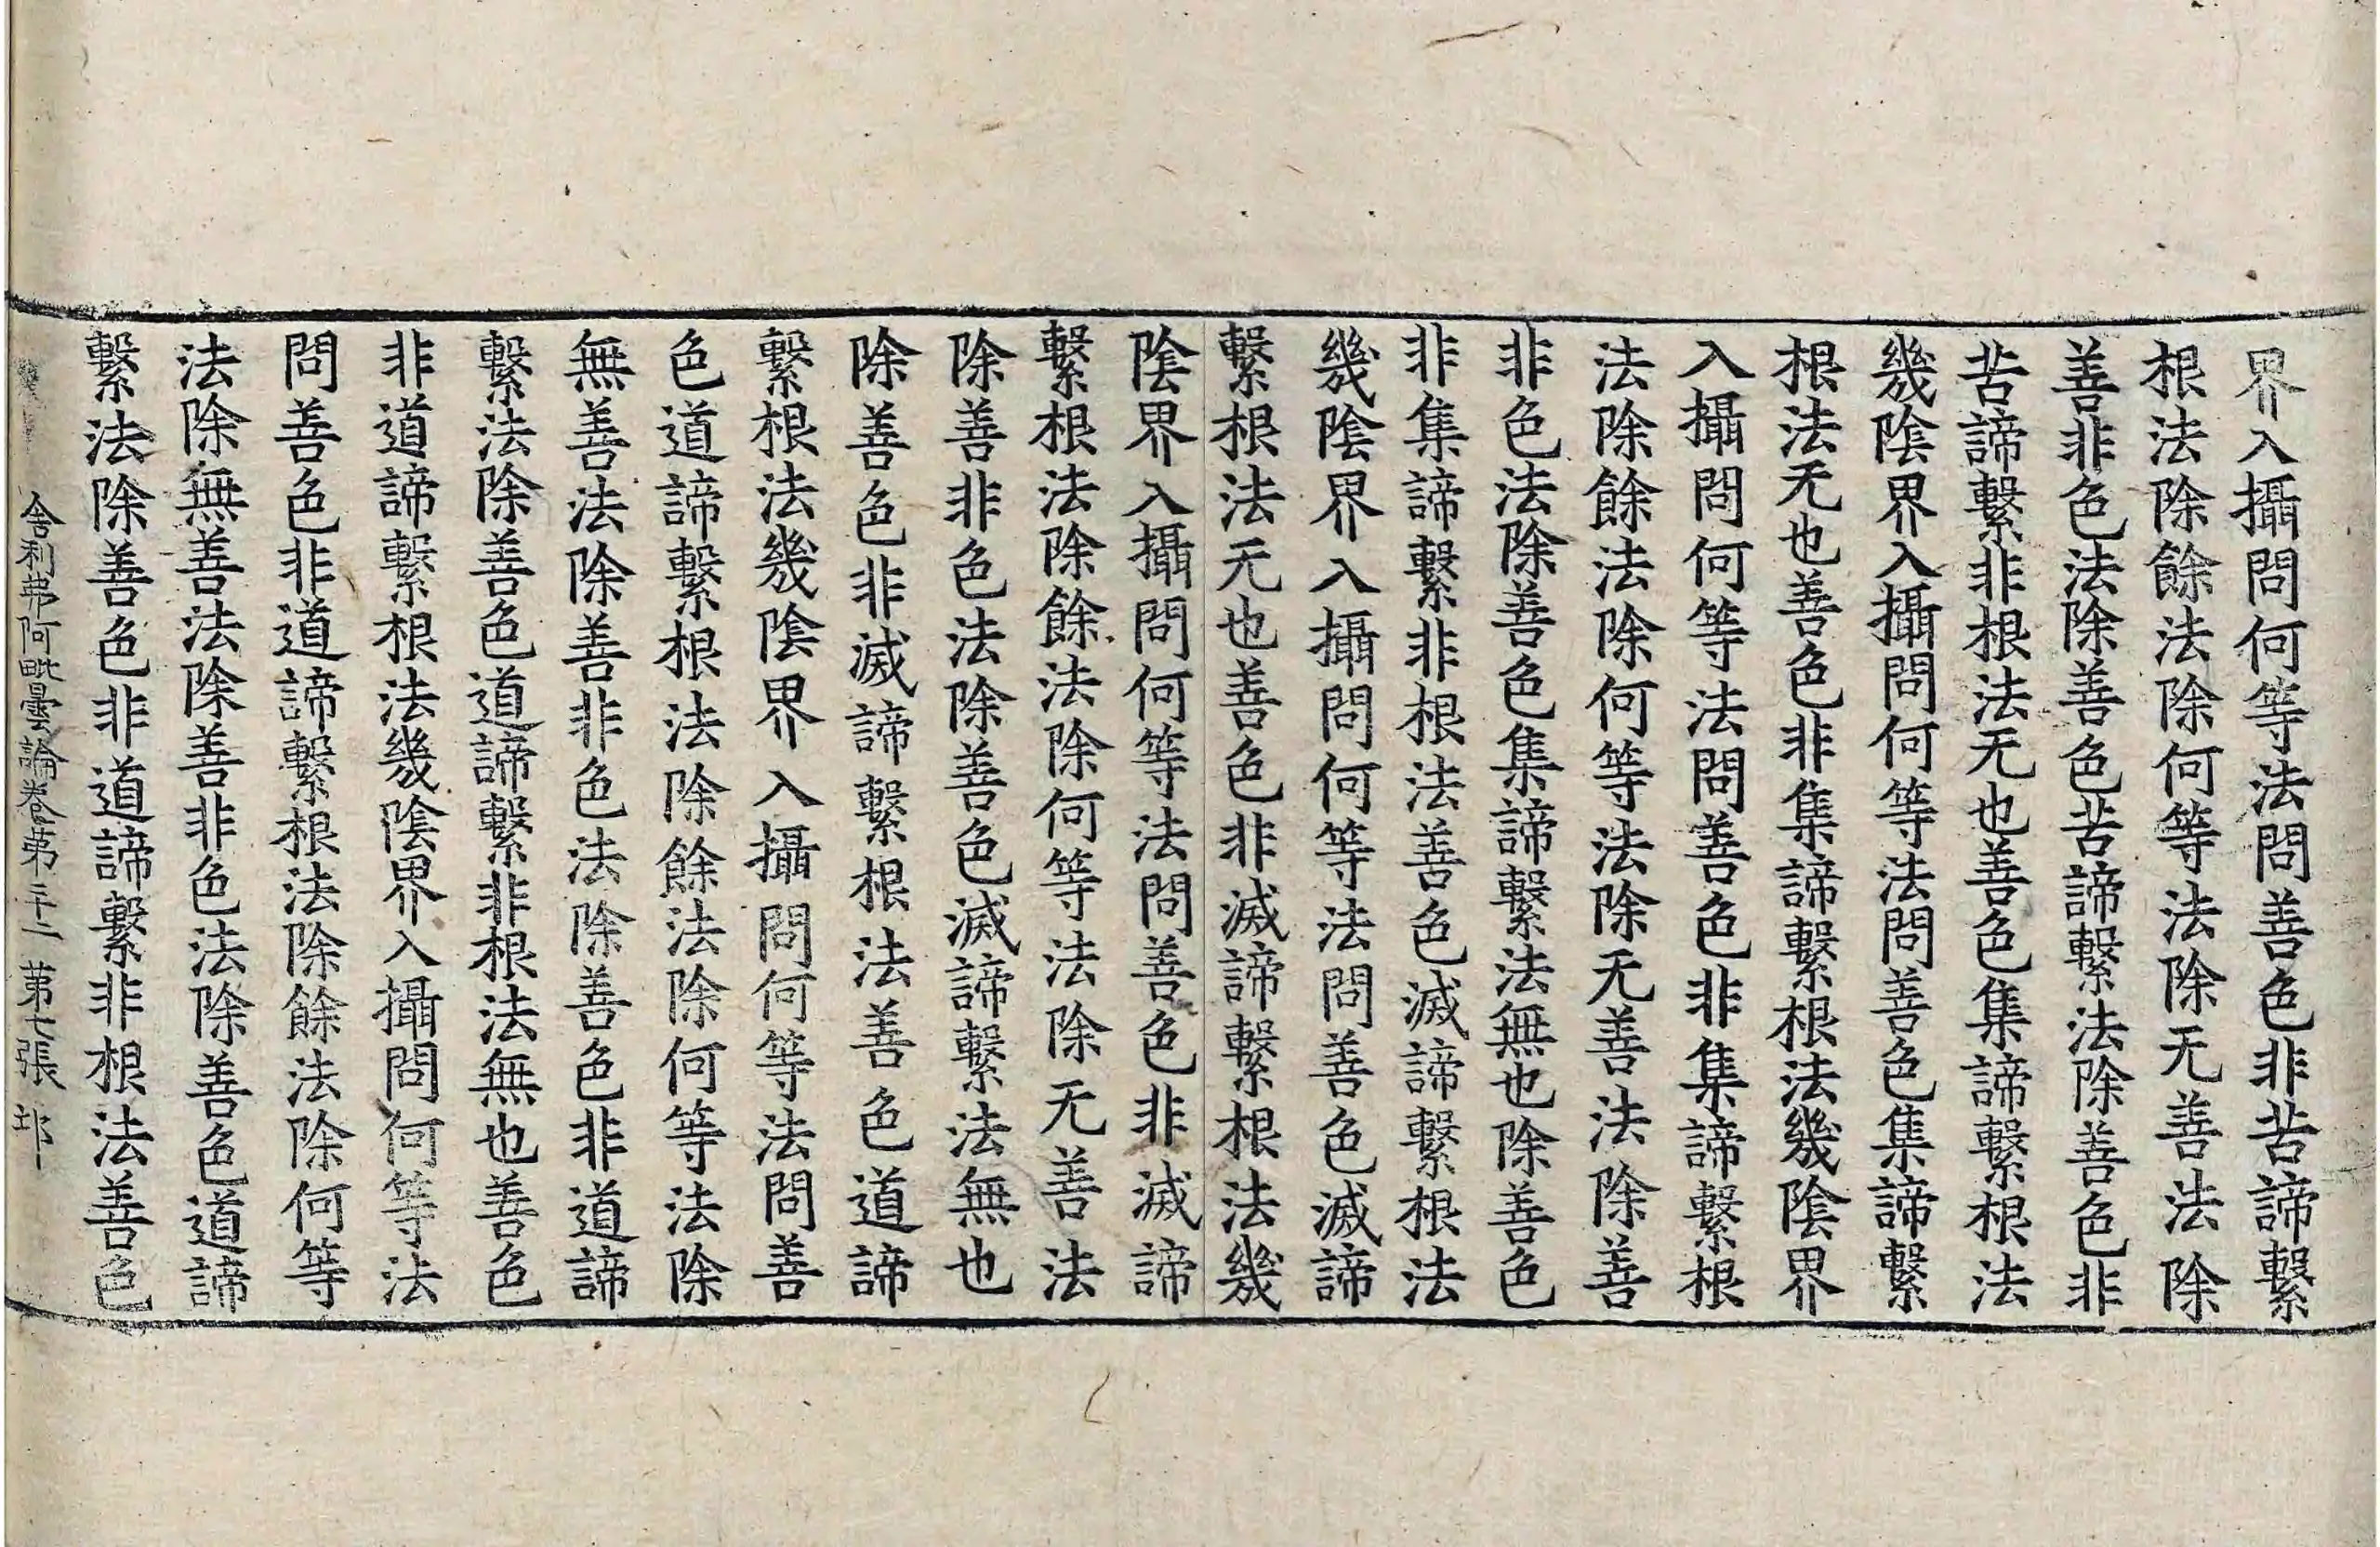 界入攝問何等法問善色非苦諦繫
根法除餘法除何等法除无善法除
善非色法除善色苦諦繫法除善色非
苦諦繫非根法无也善色集諦繫根法
幾陰界入攝問何等法問善色集諦繫
根法无也善色非集諦繫根法幾陰界
入攝問何等法問善色非集諦繫根
法除餘法除何等法除无善法除善
非色法除善色集諦繫法無也除善色
非集諦繫非根法善色滅諦繫根法
幾陰界入攝問何等法問善色滅諦
繫根法无也善色非滅諦繫根法幾
陰界入攝問何等法問善色非滅諦
繫根法除餘法除何等法除无善法
除善非色法除善色滅諦繫法無也
除善色非滅諦繫根法善色道諦
繫根法幾陰界入攝問何等法問善
色道諦繫根法除餘法除何等法除
無善法除善非色法除善色非道諦
繫法除善色道諦繫非根法無也善色
非道諦繫根法幾陰界入攝問何等法
問善色非道諦繫根法除餘法除何等
法除無善法除善非色法除善色道諦
繫法除善色非道諦繫非根法善色
舍利弗阿毗曇論卷第二十二 第七張 邶